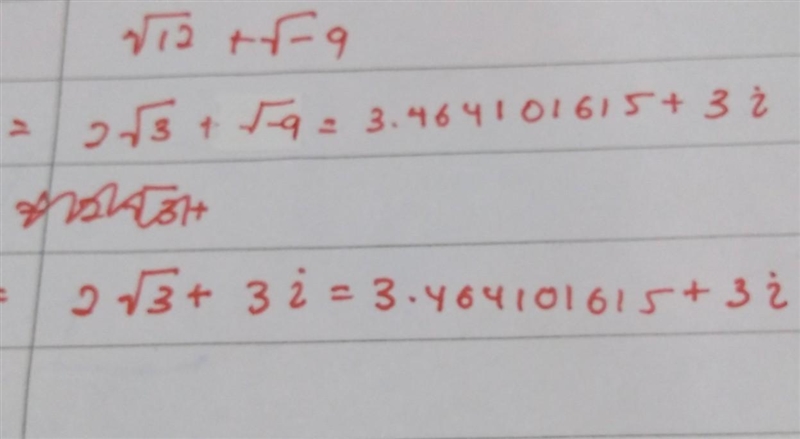 √12 + √-9
= 2√3 + √-9 = 3.464101615 + 3i
= 2√3 + 3i = 3.464101615 + 3i